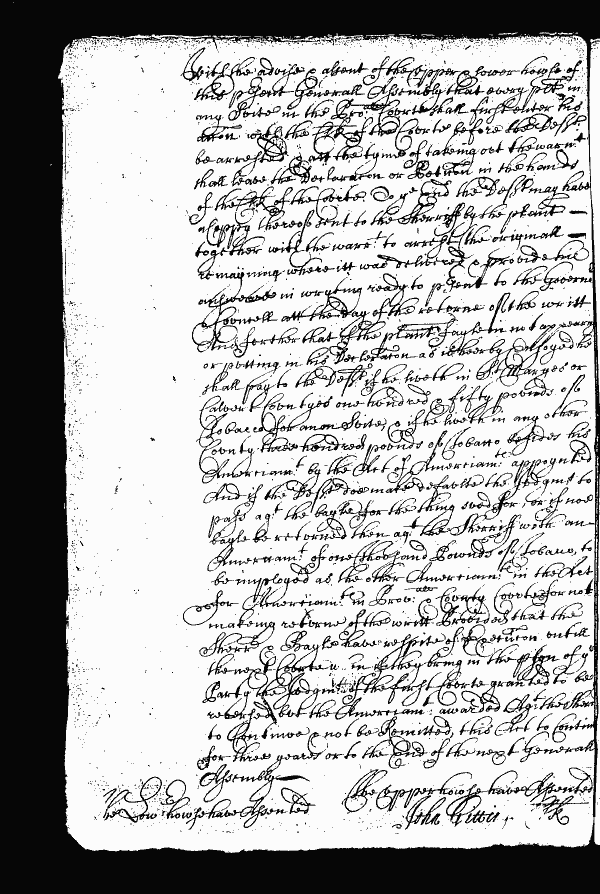 With the advise & assent of the upper & lower howse of
this p'sent Generall Assembly that every plt in
any Suite in the Pro:all Courte shall first enter his
accon with the Clk of the Courte before the Defft
be arrested & att the tyme of takeing out the warrt
shall leave the Declaracon or Peticon in the hands
of the Clk of the Courte To ye end the Defft may have
a Coppy thereof sent to the Sherriff by the plant
together with the warrt to arrest the originall
remayning where itt was delivered & provide his
answeare in wryting ready to p'sent to the Governr
& Councell att the day of the returne of the writt
And further that if the plant fayle in not appeareing
or putting in his Declaracon as is hereby alloyed he
shall pay to the Defft if he liveth in St Maryes or
Calvert Countyes one hundred & fifty pounds of
Tobacco for a non Suite, & if he liveth in any other
County three hundred pounds of Tobacco besides his
Amerciamt by the Act of Amerciamts appoynted
And if the Defft doe make default the Judgmt to
passe agt the bayle for the thing sued for, or if noe
bayle be returned then agt the Sherriff with an
Amerciamt of one thousand Pounds of Tobacco, to
be imployed as the other Amerciamts in the Act
for Amerciamts in Prov:all & County Courts for not
makeing returne of the writt Provided that the
Sherr: & Bayle have respite of Execution untill
the next Courte in they bring in the of ye
Party the Judgmt of the first Courte granted to be
reversed but the Amerciamt: awarded Agt the Sherr
to Continue & not be Remitted, this Act to Continue
for three yeares or to the End of the next Generall
Assembly
The Low howse have Assented The upper howse have Assented
John Gittings Clk